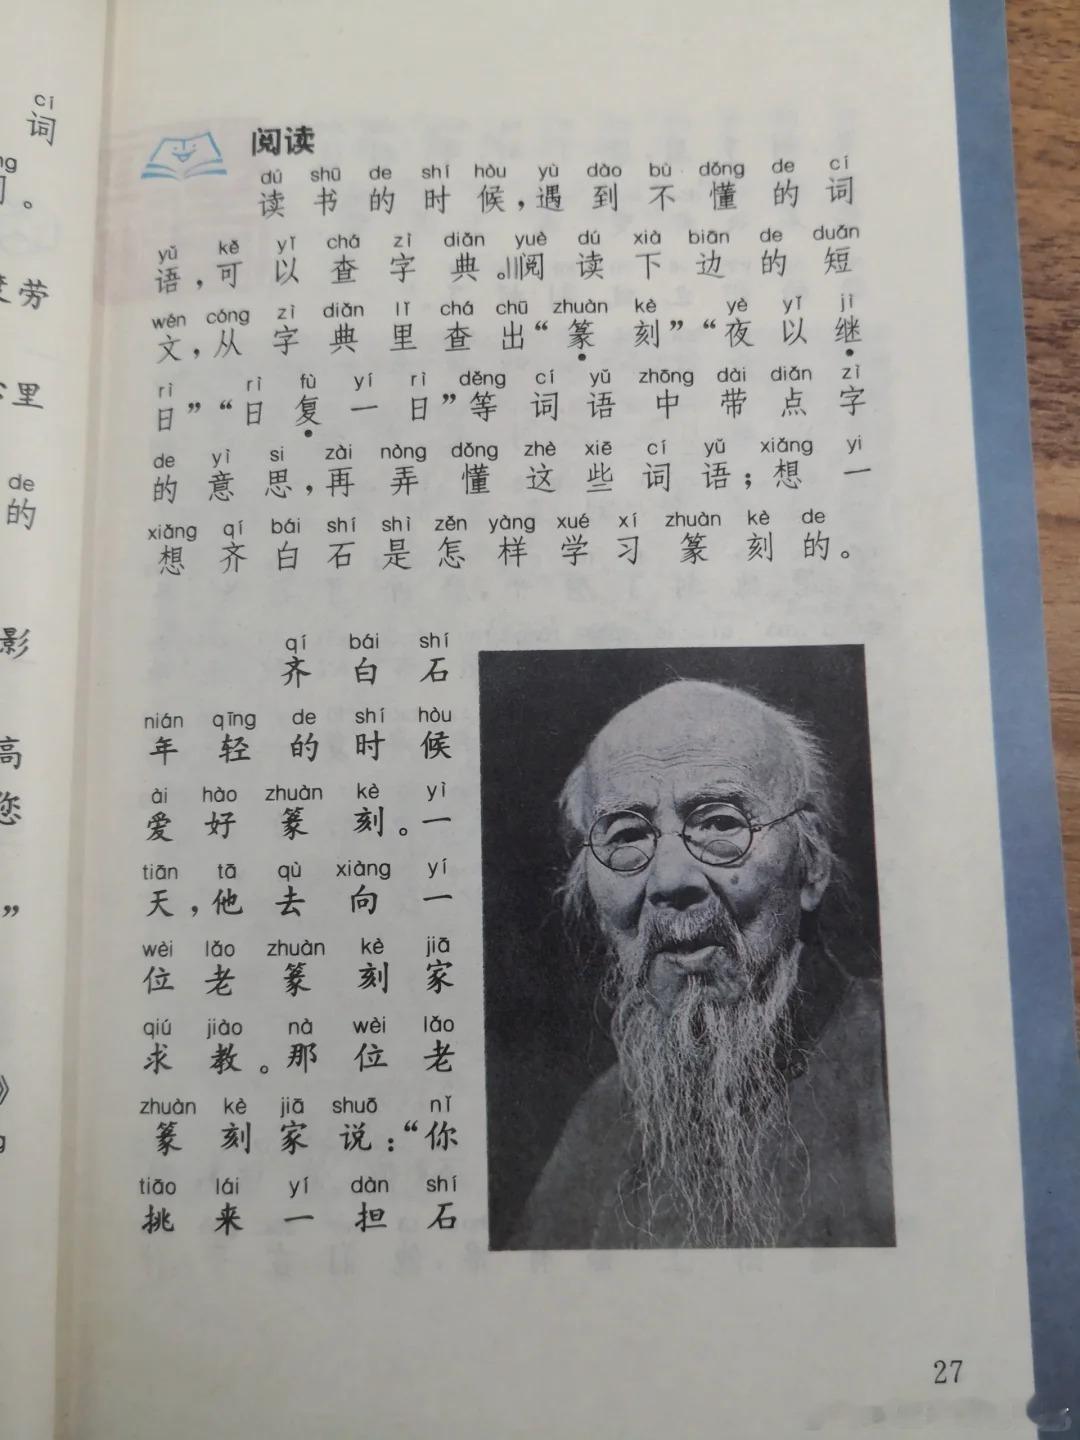 cí
词
ng
。
劳
里
de
的
影
高
您
”
》
g
阅读
dú shū de shí hòu yù dào bù dǒng de cí
读书的时候，遇到不懂的词
yǔ kě yǐ chá zì diǎn yuè dú xià biān de duǎn
语，可以查字典。阅读下边的短
wén cóng zì diǎn lǐ chá chū zhuàn kè yè yǐ jì
文，从字典里查出“篆刻”“夜以继
rì rì fù yí rì děng cí yǔ zhōng dài diǎn zì
日”“日复一日”等词语中带点字
de yì si zài nòng dǒng zhè xiē cí yǔ xiǎng yi
的意思，再弄懂这些词语；想一
xiǎng qí bái shí shì zěn yàng xué xí zhuàn kè de
想齐白石是怎样学习篆刻的。
qí bái shí
齐白石
nián qīng de shí hòu
年轻的时候
ài hào zhuàn kè yì
爱好篆刻。一
tiān tā qù xiàng yí
天，他去向一
wèi lǎo zhuàn kè jiā
位老篆刻家
qiú jiào nà wèi lǎo
求教。那位老
zhuàn kè jiā shuō nǐ
篆刻家说：“你
tiāo lái yí dàn shí
挑来一担石
27